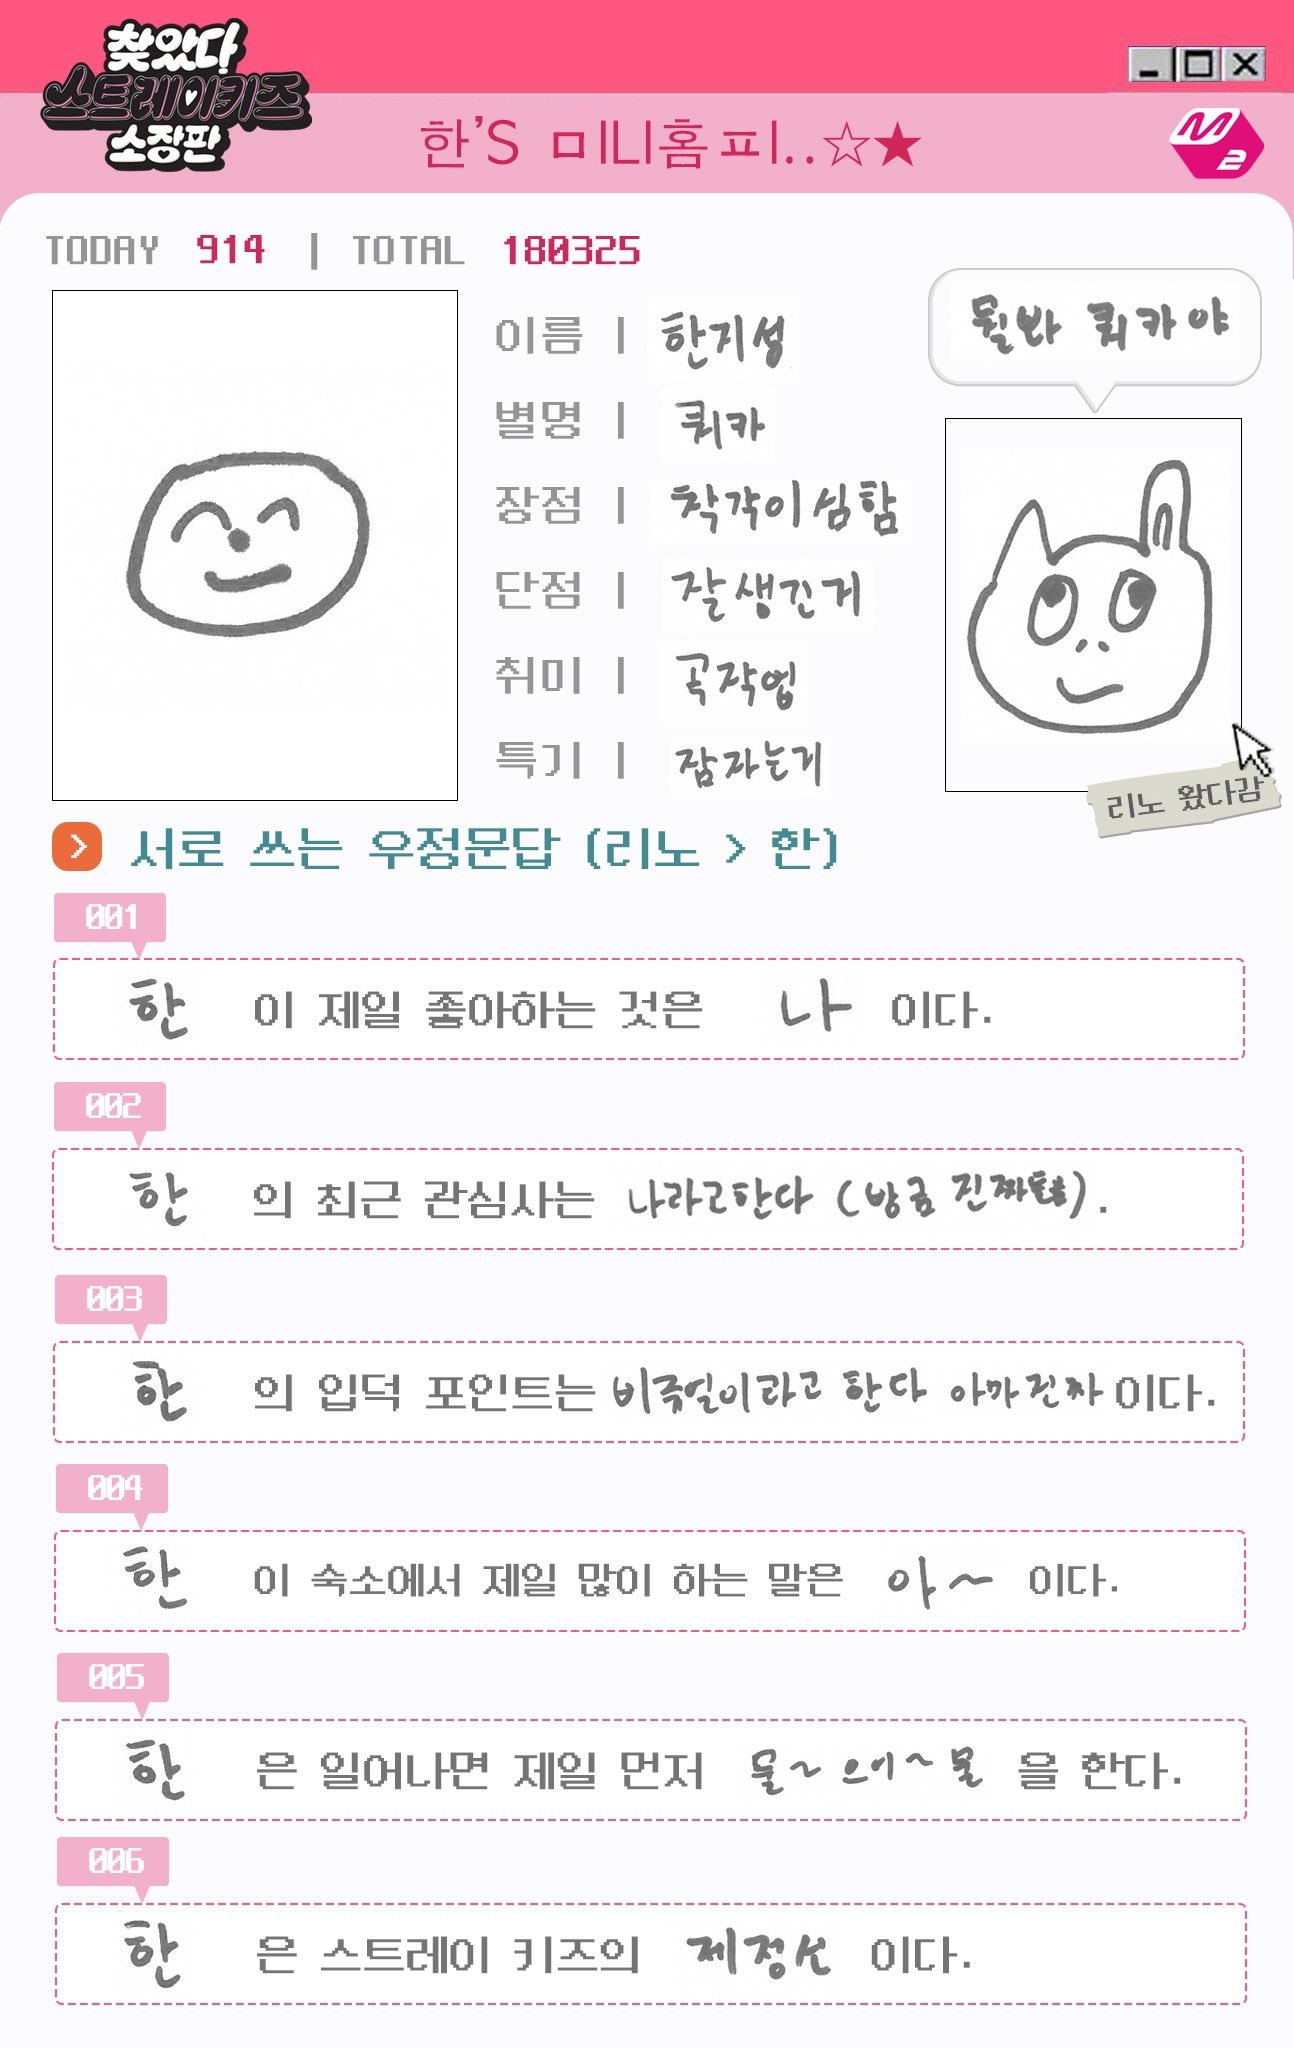 찾았다
스트레이키즈
소장판
한'S 미니홈피..☆★
M2
TODAY 914 | TOTAL 180325
이름 | 한지성
별명 | 쿼카
장점 | 착각이 심함
단점 | 잘생긴거
취미 | 곡작업
특기 | 잠자는거
뭘봐 쿼카야
리노 왔다감
서로 쓰는 우정문답 (리노 > 한)
001
한 이 제일 좋아하는 것은 나 이다.
002
한 의 최근 관심사는 나라고한다 (방금 진짜).
003
한 의 입덕 포인트는 비주얼이라고 한다 아까진짜 이다.
004
한 이 숙소에서 제일 많이 하는 말은 아~ 이다.
005
한 은 일어나면 제일 먼저 물~ 으어~ 물 을 한다.
006
한 은 스트레이 키즈의 제정신 이다.